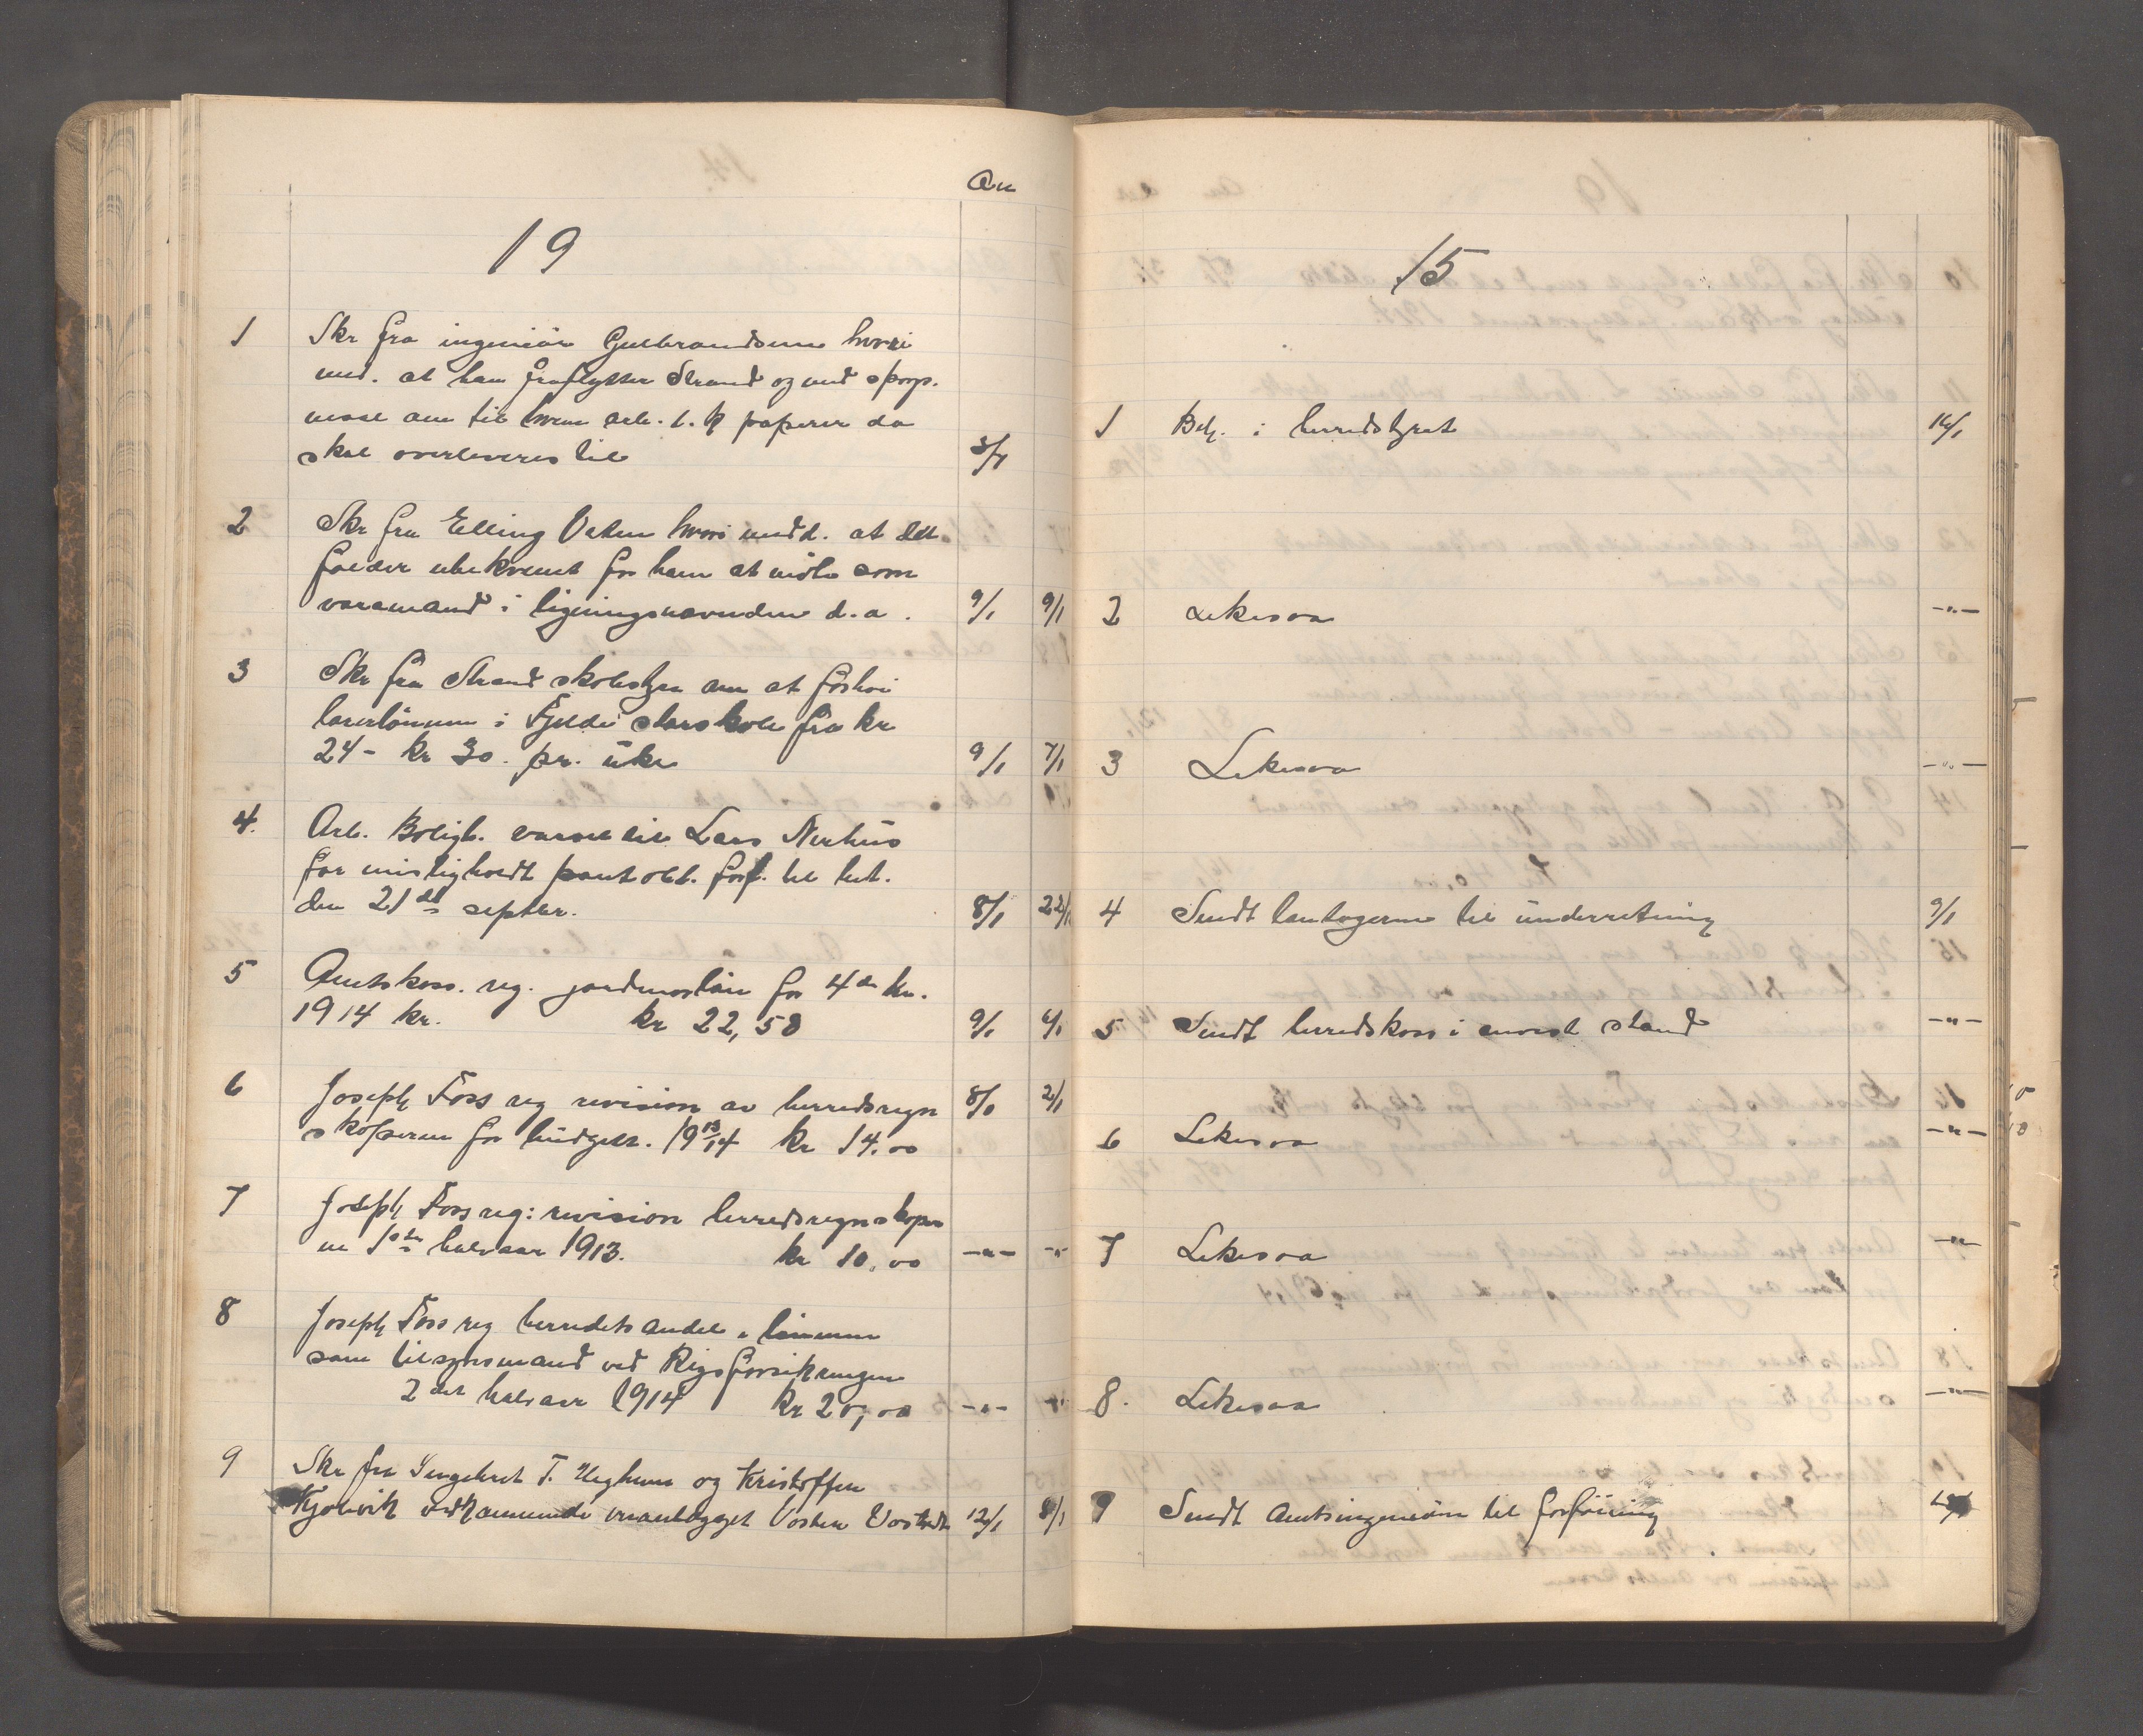 An
19
1 Skr fra ingeniör Gulbrandsen hvori
med. at han fraflytter Strand og med spørs-
maal om til hvem arb. papirer da
skal overleveres til 3/1
2 Skr fra Elling Veden hvori medd. at det
falder ubekvemt for ham at møte som
varamand i ligningsnævnden d.a. 9/1 9/1
3 Skr fra Strand skolestyre om at forhøi
lærerlønnen i Fjelde skole fra kr
24- kr 30. pr. uke 9/1 7/1
4. Arb. Boligb. varsel til Lars Nerhus
for misligholdt pantobl. forf. til bet.
den 21de septbr. 8/1 22/1
5 Amtskass. reg. jordmorløn for 4de kv.
1914 kr. kr 22,50 9/1 6/1
6 Joseph Foss reg revision av herredsregn
skaperne for budgett. 1913/14 kr 14.00 8/1 2/1
7 Joseph Foss reg: revision herredsregnskaper
ne 1ste halvaar 1913. kr 10.00 -"- -"-
8 Joseph Foss reg herredets andel i lønnen
som tilsynsmand ved Rigsforsikringen
2det halvaar 1914 kr 20,00 -"- -"-
9 Skr fra Ingebret T. og Kristoffer
Fjelvik vedkommende veianlægget Vostera 12/1 8/1
15
1 Beh. i herredstyret 16/1
2 Likesaa -"-
3 Likesaa -"-
4 Sendt lantageren til underretning 9/1
5 Sendt herredskass i anvist stand -"-
6 Likesaa -"-
7 Likesaa -"-
8. Likesaa -"-
9 Sendt Amtsingeniøren til forføining